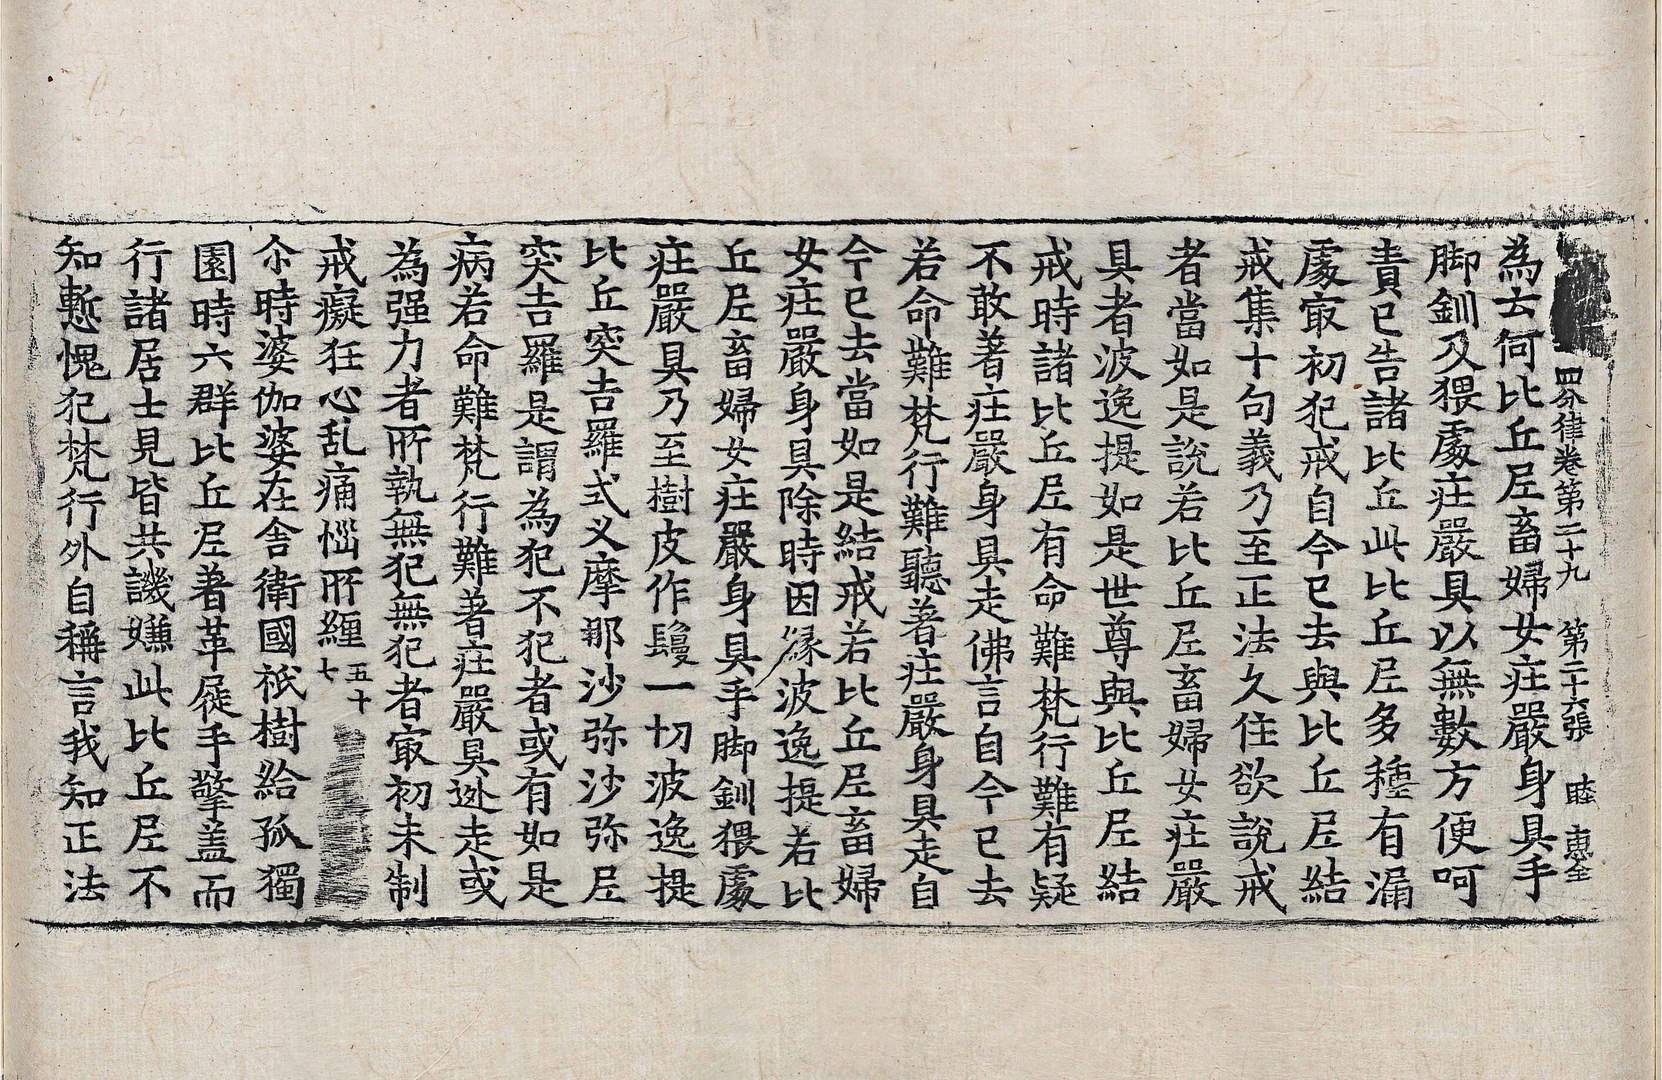 四分律卷第二十九　第二十六張　睦　惠全
為去何比丘尼畜婦女莊嚴身具手
脚釧及猥處莊嚴具以無數方便呵
責已告諸比丘此比丘尼多種有漏
處㝡初犯戒自今已去與比丘尼結
戒集十句義乃至正法久住欲說戒
者當如是說若比丘尼畜婦女莊嚴
具者波逸提如是世尊與比丘尼結
戒時諸比丘尼有命難梵行難有疑
不敢著莊嚴身具走佛言自今已去
若命難梵行難聽著莊嚴身具走自
今已去當如是結戒若比丘尼畜婦
女莊嚴身具除時因緣波逸提若比
丘尼畜婦女莊嚴身具手脚釧猥處
莊嚴具乃至樹皮作鬘一切波逸提
比丘突吉羅式叉摩那沙弥沙弥尼
突吉羅是謂為犯不犯者或有如是
病若命難梵行難著莊嚴具迯走或
為强力者所執無犯無犯者㝡初未制
戒癡狂心乱痛惱所纏五十七
尒時婆伽婆在舍衛國祇樹給孤獨
園時六群比丘尼著革屣手擎盖而
行諸居士見皆共譏嫌此比丘尼不
知慙愧犯梵行外自稱言我知正法